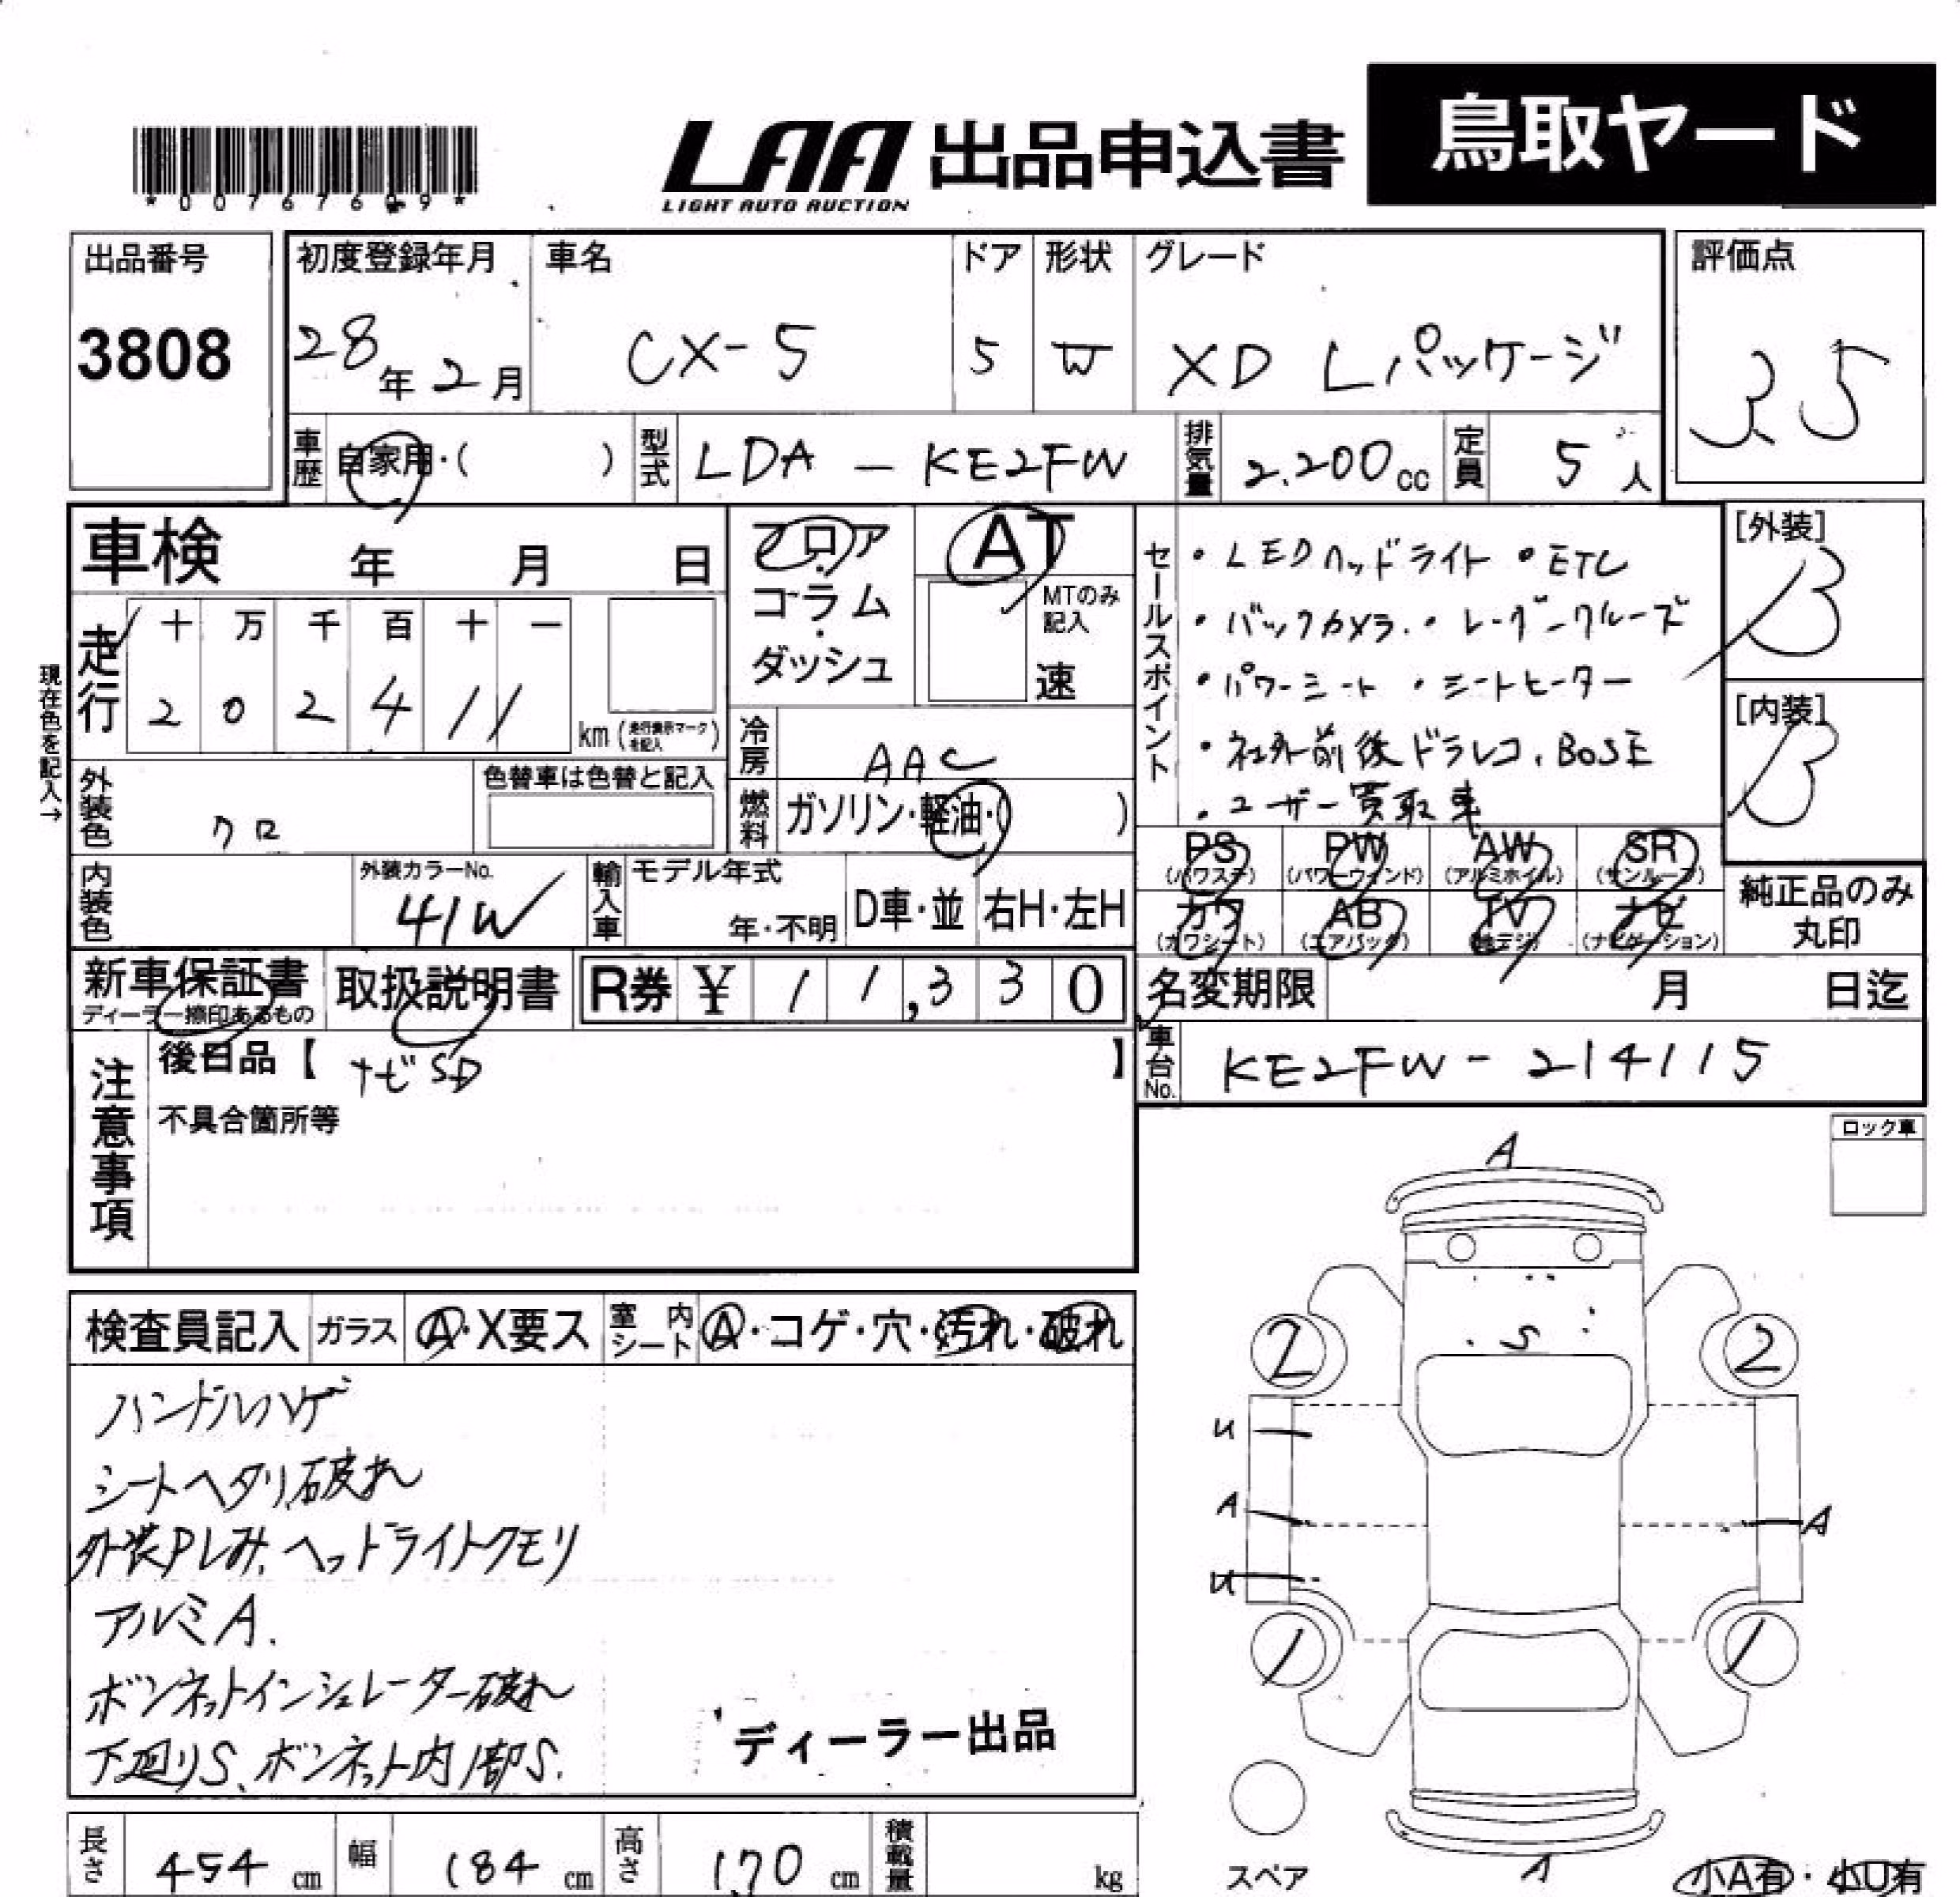 LAA 出品申込書 鳥取ヤード
LIGHT AUTO AUCTION
出品番号
3808
初度登録年月 車名 ドア 形状 グレード
28年2月 CX-5 5 W XD Lパッケージ
評価点
3.5
車歴 自家用・( ) 型式 LDA - KE2FW 排気量 2.200cc 定員 5人
車検 年 月 日
フロア・コラム・ダッシュ
AT
MTのみ記入
速
セールスポイント
・LEDヘッドライト ・ETC
・バックカメラ.・レーダークルーズ
・パワーシート ・シートヒーター
・社外前後ドラレコ、BOSE
・ユーザー買取車
[外装]
B
[内装]
B
現在色を記入→
走行 十 万 千 百 十 一
2 0 2 4 1 1 km (走行表示マークを記入)
冷房 AAC
外装色 クロ
色替車は色替と記入
燃料 ガソリン・軽油・( )
内装色
外装カラーNo.
41W
輸入車 モデル年式
年・不明 D車・並 右H・左H
PS (パワステ) PW (パワーウィンド) AW (アルミホイル) SR (サンルーフ)
カワ (カワシート) AB (エアバッグ) TV (地デジ) ナビ (ナビゲーション)
純正品のみ
丸印
新車保証書 ディーラー捺印あるもの
取扱説明書
R券 ¥ 11,330
名変期限 月 日迄
車台No. KE2FW - 214115
注意事項
後日品【 ナビSD 】
不具合箇所等
ロック車
検査員記入 ガラス A・X要ス 室内シート A・コゲ・穴・汚れ・破れ
ハンドルハゲ
シートヘタリ、破れ
外装Pしみ、ヘッドライトクモリ
アルミA.
ボンネットインシュレーター破れ
下廻りS、ボンネット内1部S.
ディーラー出品
A
S
2 2
U
A A
U
1 1
A
スペア
小A有・小U有
長さ 454cm 幅 184cm 高さ 170cm 積載量 kg